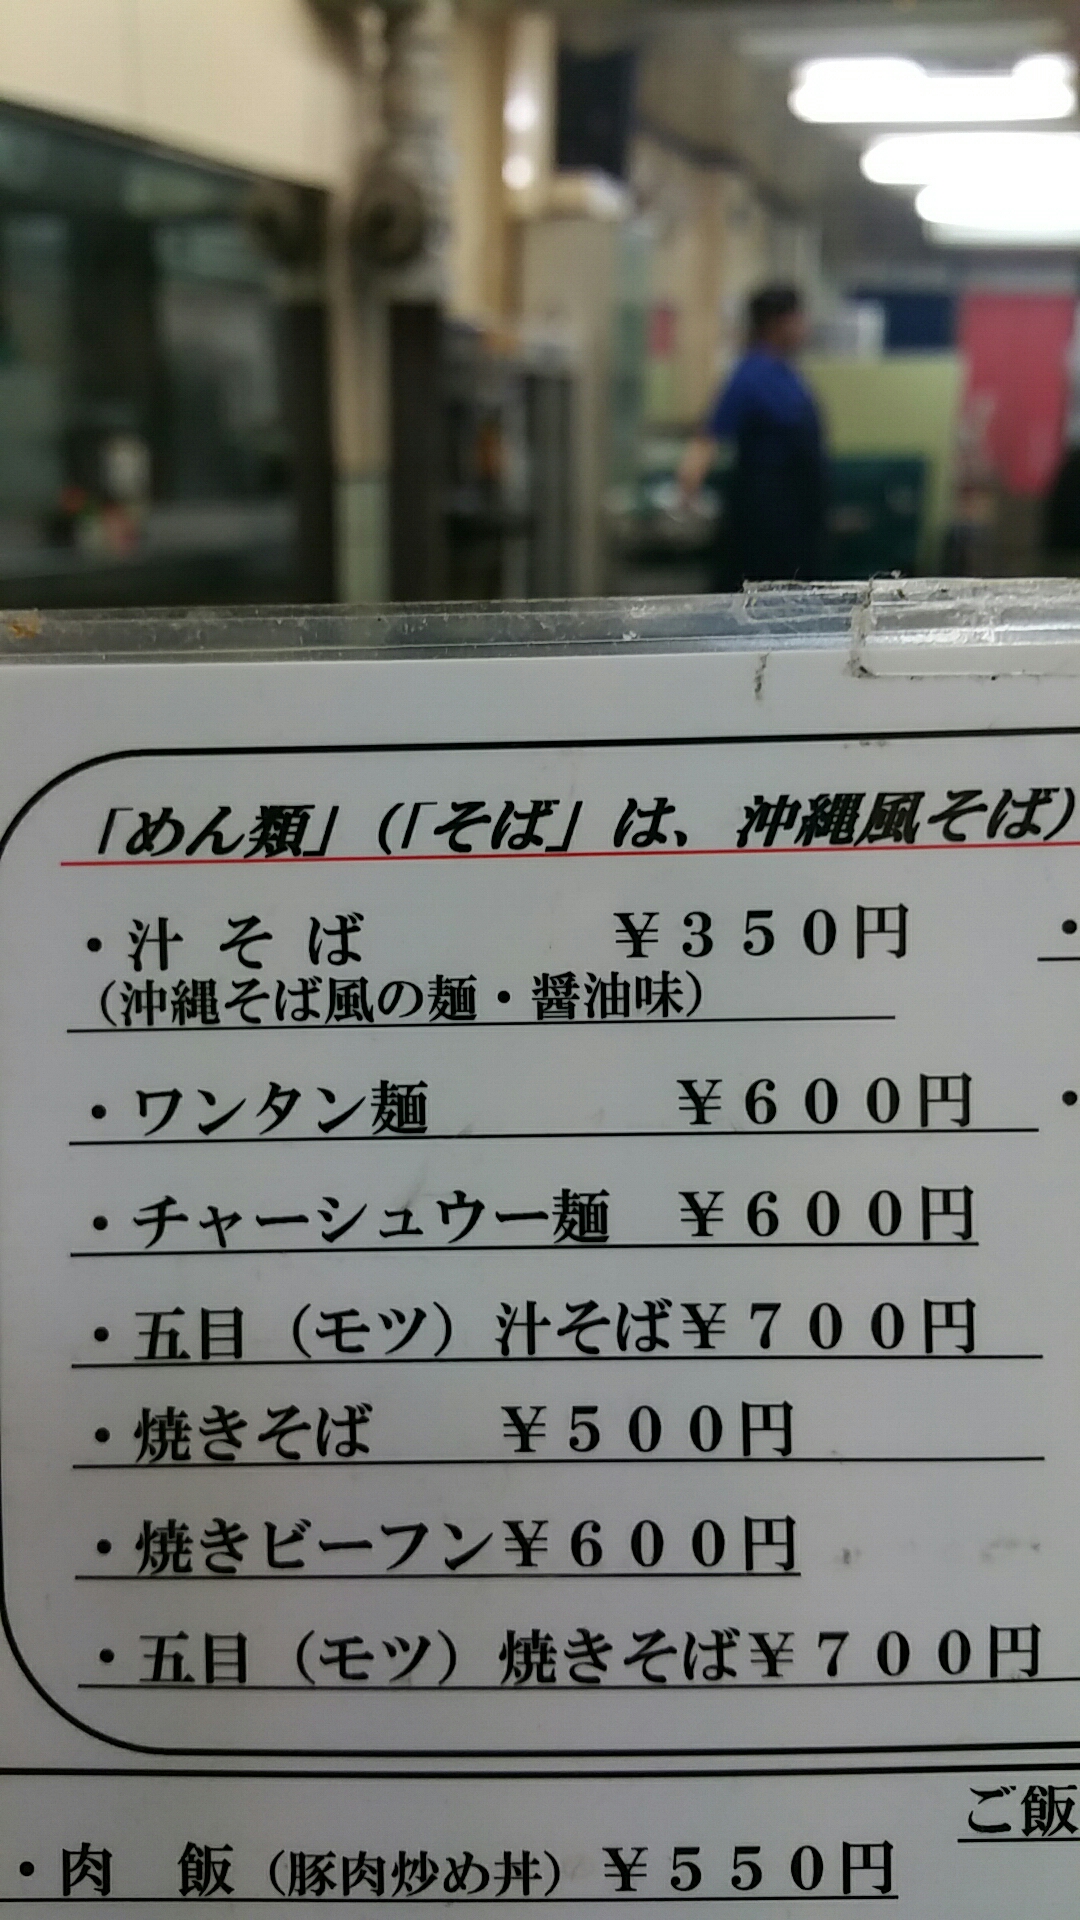 「めん類」（「そば」は、沖縄風そば）
・汁そば ￥３５０円
（沖縄そば風の麺・醤油味）
・ワンタン麺 ￥６００円
・チャーシュウー麺 ￥６００円
・五目（モツ）汁そば￥７００円
・焼きそば ￥５００円
・焼きビーフン￥６００円
・五目（モツ）焼きそば￥７００円
ご飯
・肉 飯（豚肉炒め丼）￥５５０円